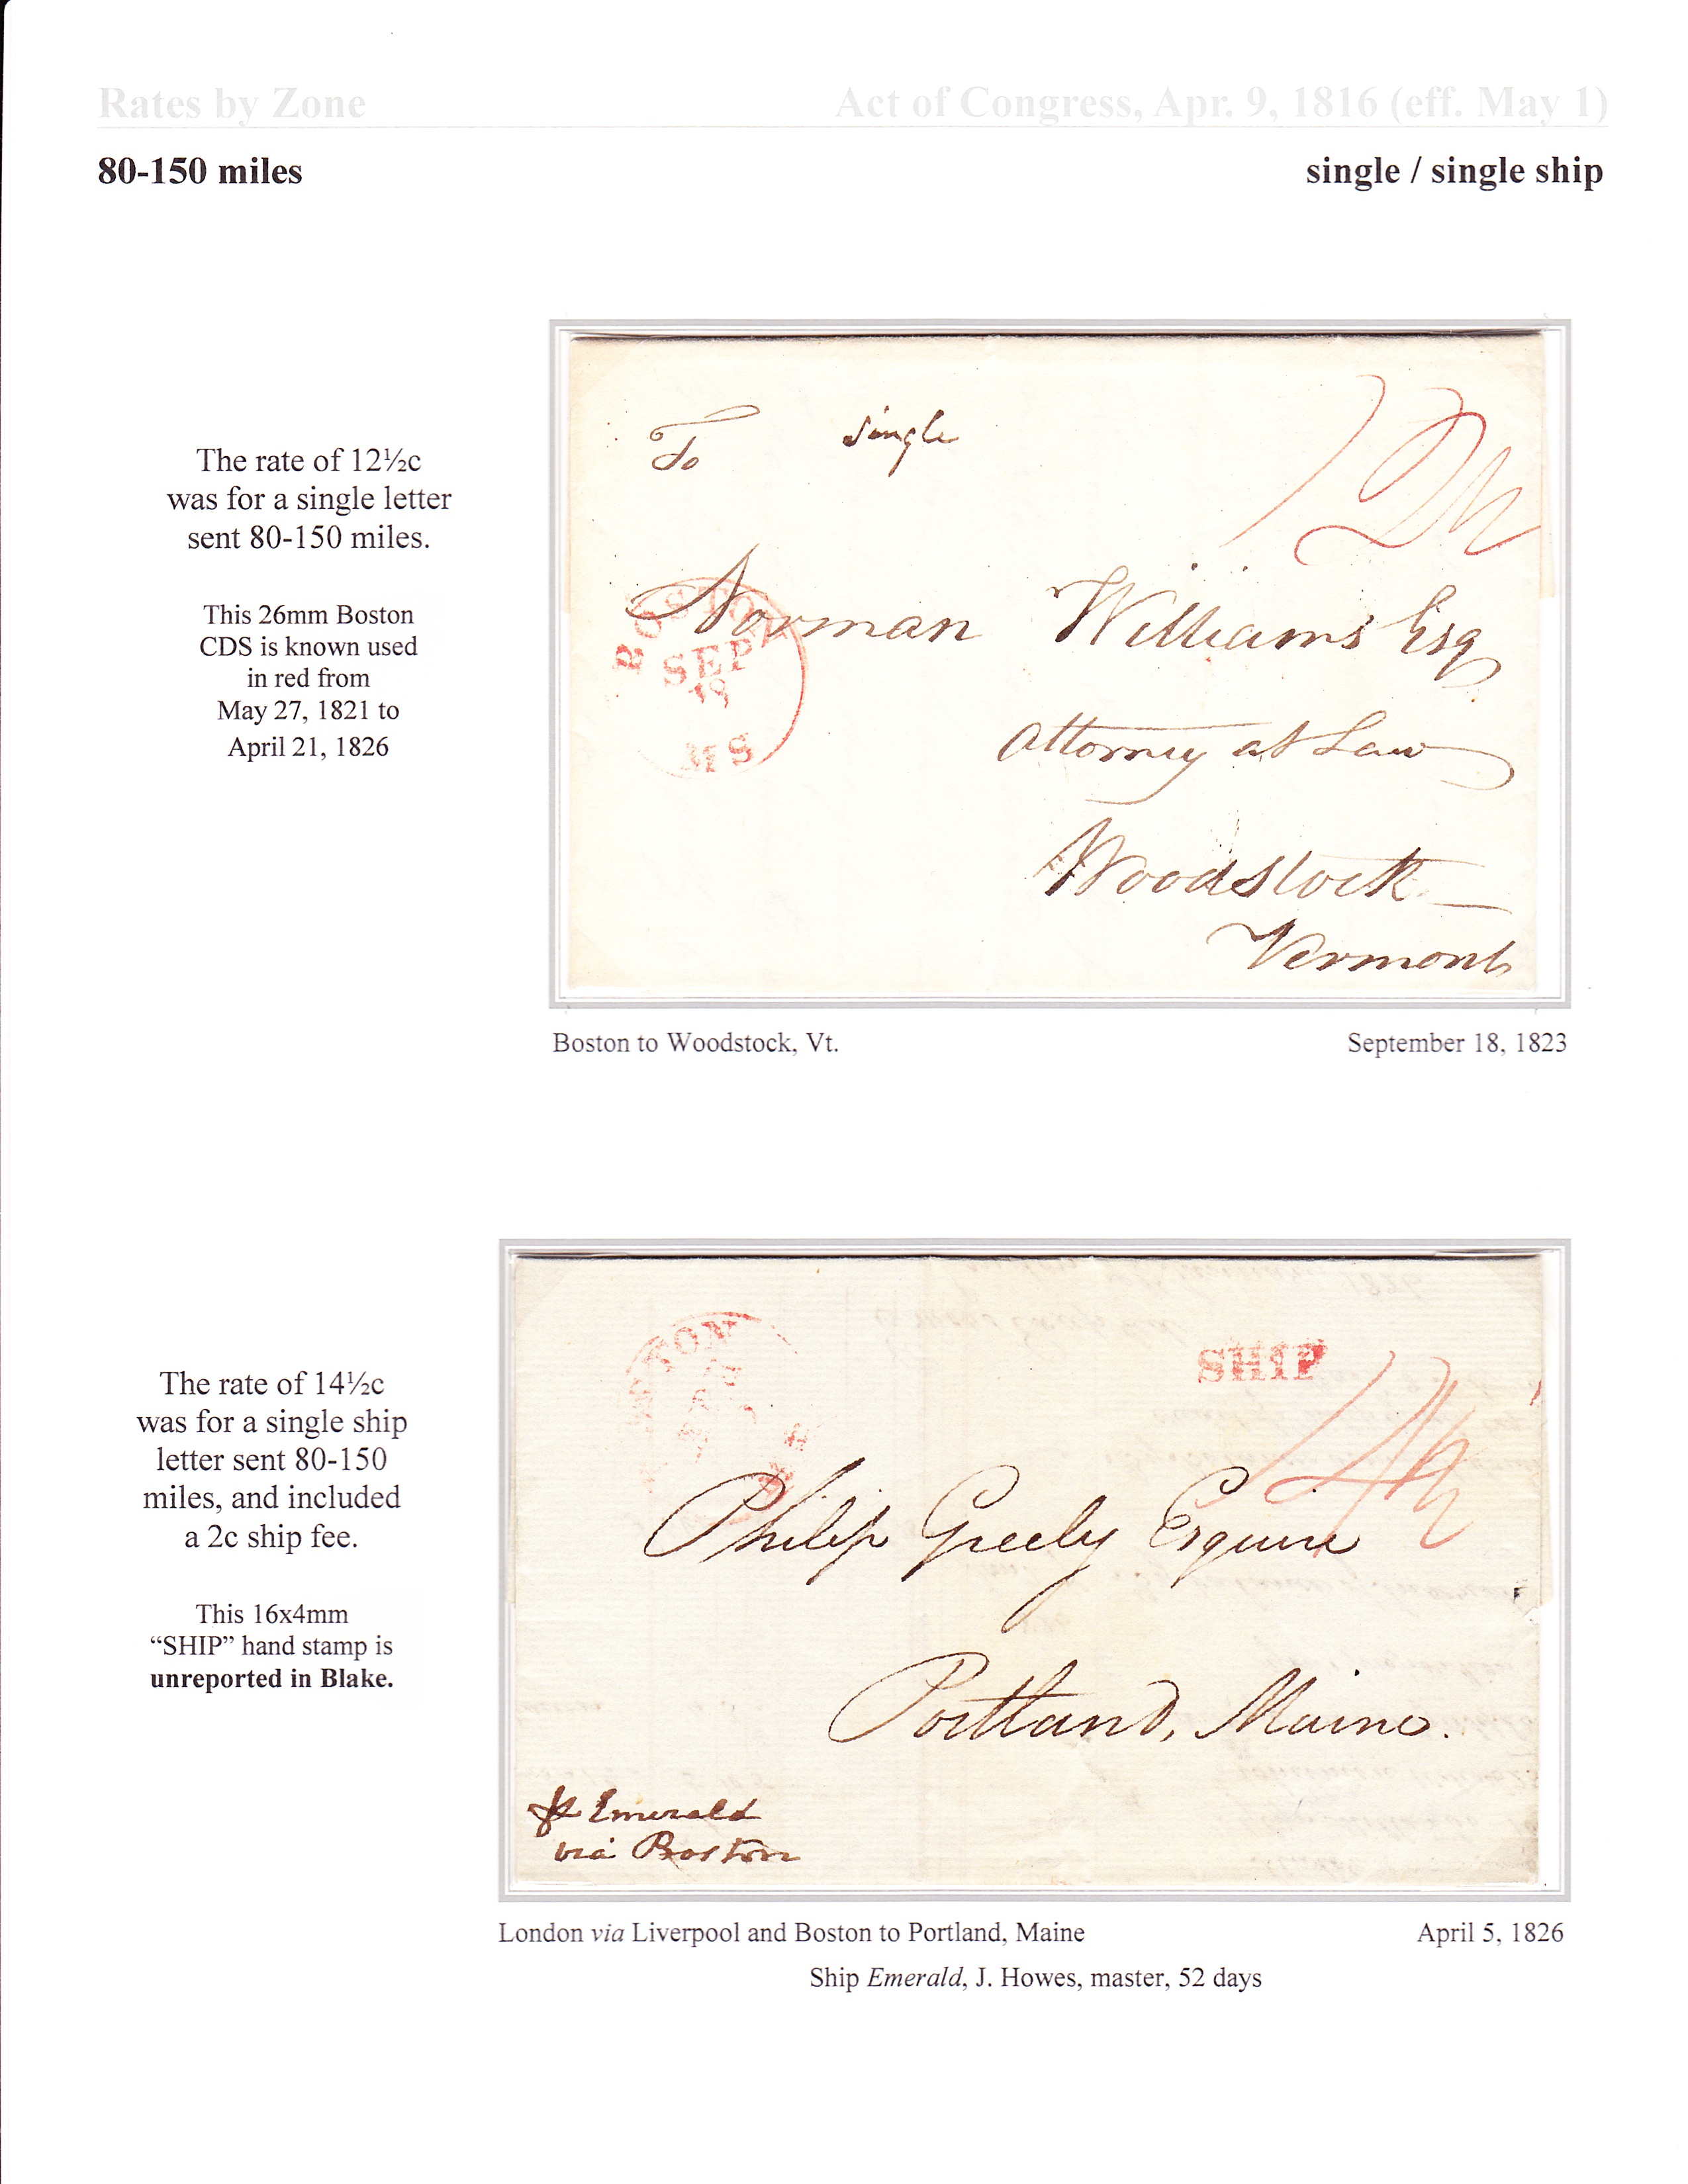 Rates by Zone Act of Congress, Apr. 9, 1816 (eff. May 1)
80-150 miles single / single ship
The rate of 12½c
was for a single letter
sent 80-150 miles.
This 26mm Boston
CDS is known used
in red from
May 27, 1821 to
April 21, 1826
To single
12½
Norman Williams Esq
BOSTON
SEP
18
MS
Attorney at Law
Woodstock
Vermont
Boston to Woodstock, Vt. September 18, 1823
The rate of 14½c
was for a single ship
letter sent 80-150
miles, and included
a 2c ship fee.
This 16x4mm
“SHIP” hand stamp is
unreported in Blake.
SHIP
14½
Philip Greely Esquire
Portland, Maine.
Emerald
via Boston
London via Liverpool and Boston to Portland, Maine April 5, 1826
Ship Emerald, J. Howes, master, 52 days